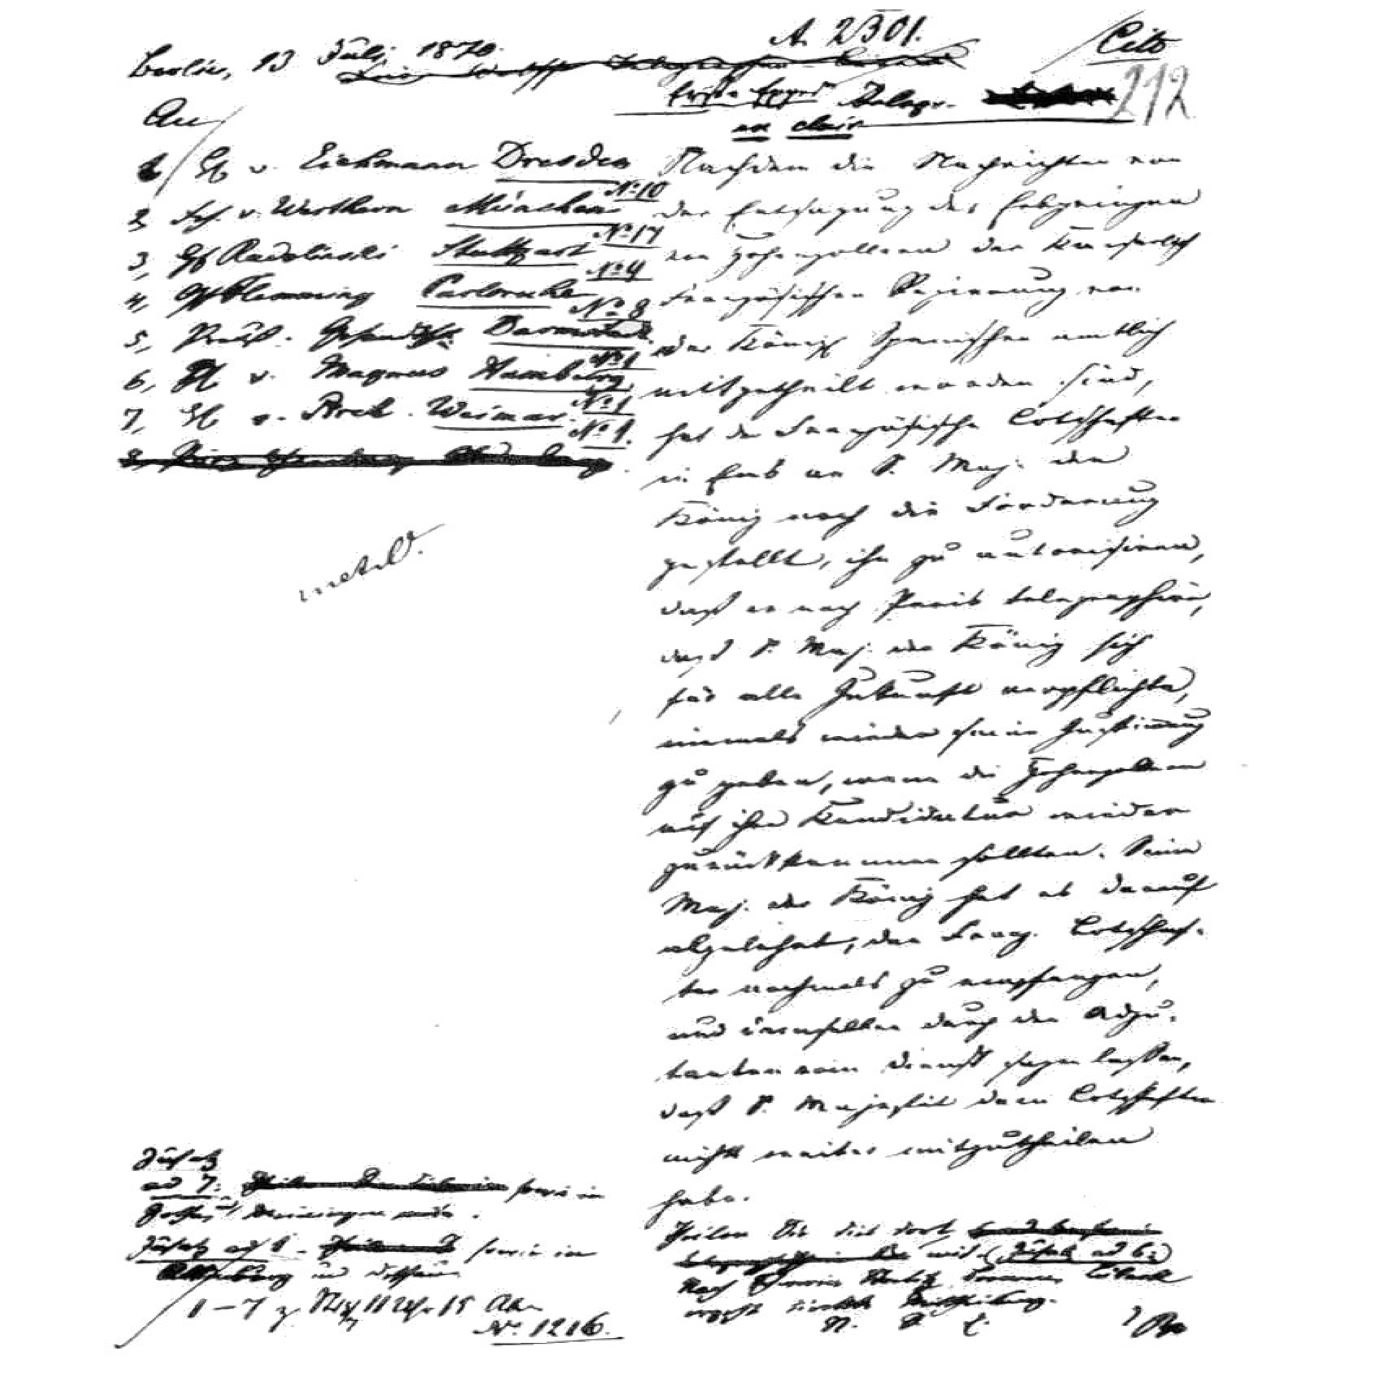 A. 2301.
Cito
Berlin, 13 Juli 1870.
212
Telegr.
en clair
An
1 H v. Eichmann Dresden
No 10
2, Frh. v. Werthern München
No 17
3, Gf Radolinski Stuttgart
No 9
4, Gf Flemming Carlsruhe
No 8
5, Preuß. Gesandtsch. Darmstadt
No 1
6, H v. Magnus Hamburg
No 1
7, H v. Weimar.
No 1.
Nachdem die Nachrichten von
der Entsagung des Erbprinzen
von Hohenzollern der Kaiserlich
Französischen Regierung von
der Königl Spanischen amtlich
mitgetheilt worden sind,
hat der Französische Botschafter
in Ems an S. Maj. den
König noch die Forderung
gestellt, ihn zu autorisiren,
daß er nach Paris telegraphire,
daß S. Maj. der König sich
für alle Zukunft verpflichte,
niemals wieder seine Zustimmung
zu geben, wenn die Hohenzollern
auf ihre Kandidatur wieder
zurückkommen sollten. Seine
Maj. der König hat es darauf
abgelehnt, den Franz. Botschaf-
ter nochmals zu empfangen,
und demselben durch den Adju-
tanten vom Dienst sagen lassen,
daß S. Majestät dem Botschafter
nichts weiter mitzutheilen
habe.
Zusatz
ad 7: sowie in
Gotha, Meiningen
Zusatz ad sowie in
Altenburg und Dessau
1–7 z. 11 Uhr 15
No 1216.
Theilen Sie dies dort
mit. (Zusatz ad 6:)
Nach Bremen Lübeck
ergeht direkte Mittheilung.